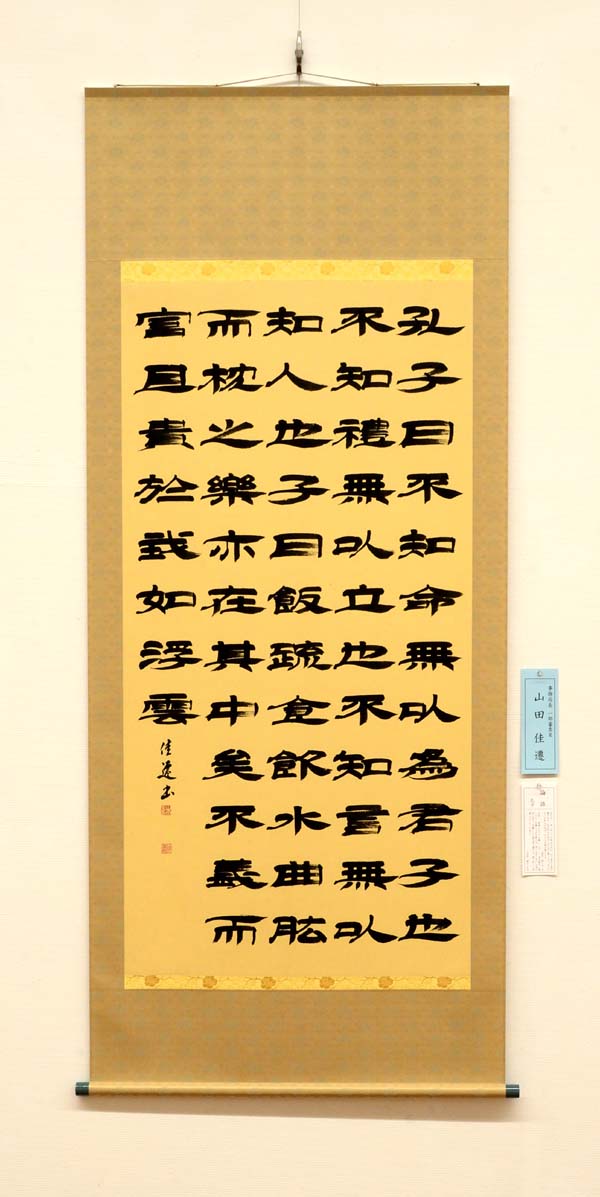 孔子曰不知命無以為君子也
不知禮無以立也不知言無以
知人也子曰飯疏食飲水曲肱
而枕之樂亦在其中矣不義而
富且貴於我如浮雲
佳遷書
山田佳遷
論語